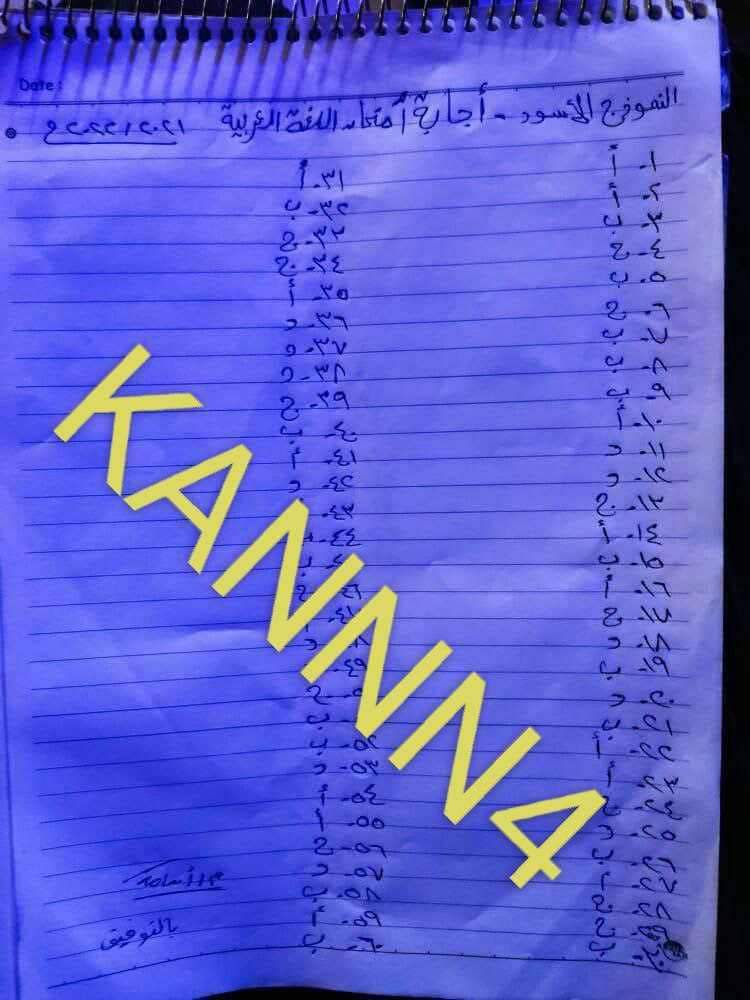 Date:
النموذج الأسود - أجابة أمتحان اللغة العربية ٢٠٢١/٢٠٢٢م
١- أ
٢- أ
٣- ب
٤- ج
٥- ب
٦- ج
٧- ب
٨- ب
٩- ب
١٠- أ
١١- د
١٢- د
١٣- ج
١٤- أ
١٥- ب
١٦- أ
١٧- ج
١٨- د
١٩- ب
٢٠- د
٢١- ب
٢٢- أ
٢٣- أ
٢٤-
٢٥- د
٢٦- ب
٢٧- أ
٢٨- ج
٢٩- ج
٣٠- ب
٣١- أ
٣٢- ب
٣٣- ج
٣٤- ج
٣٥- أ
٣٦- د
٣٧- د
٣٨- د
٣٩- ج
٤٠- ب
٤١- أ
٤٢- د
٤٣-
٤٤-
ب
٤٦- ج
د
٤٩-
ج
ب
٥٢- ب
٥٣- د
٥٤- أ
٥٥- أ
٥٦- ج
٥٧- د
٥٨- ب
٥٩- أ
٦٠- ب
بالتوفيق
KANNN4